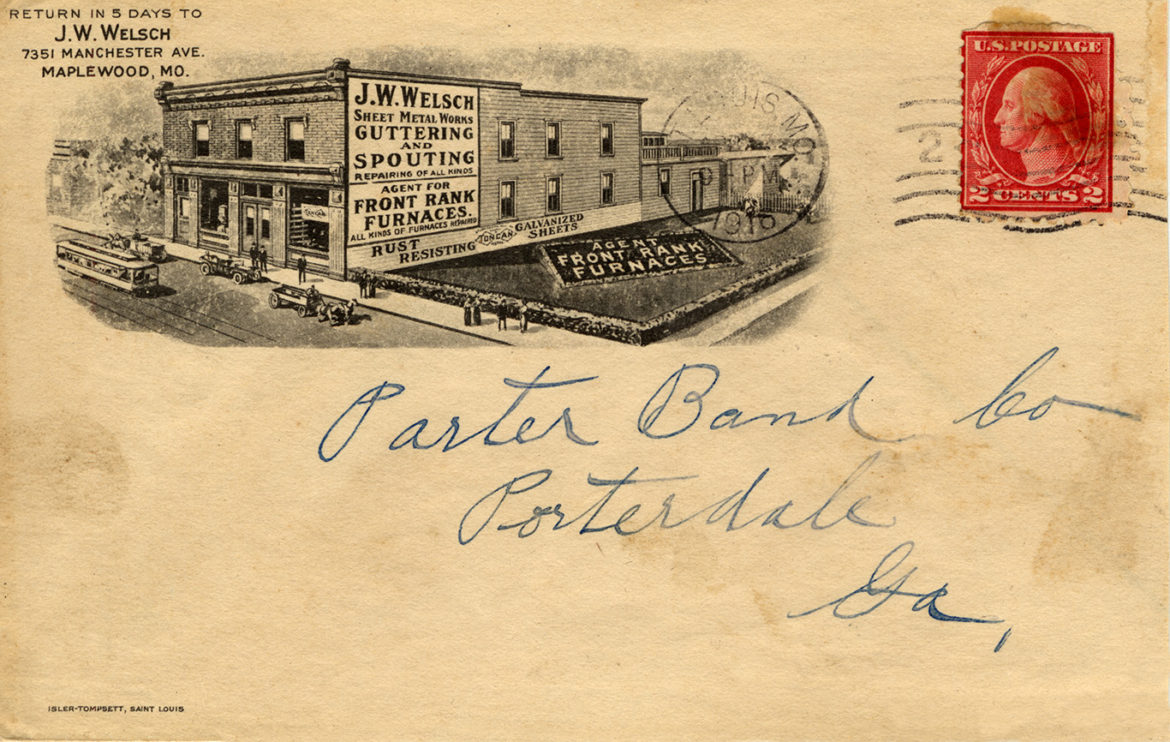 RETURN IN 5 DAYS TO
J.W. WELSCH
7351 MANCHESTER AVE.
MAPLEWOOD, MO.
J.W. WELSCH
SHEET METAL WORKS
GUTTERING
AND
SPOUTING
REPAIRING OF ALL KINDS
AGENT FOR
FRONT RANK
FURNACES.
ALL KINDS OF FURNACES REPAIRED
RUST RESISTING TONCAN GALVANIZED SHEETS
AGENT
FRONT RANK
FURNACES
MO.
PM
1916
2
U.S. POSTAGE
2 CENTS 2
Porter Band Co
Porterdale
Ga,
ISLER-TOMPSETT, SAINT LOUIS